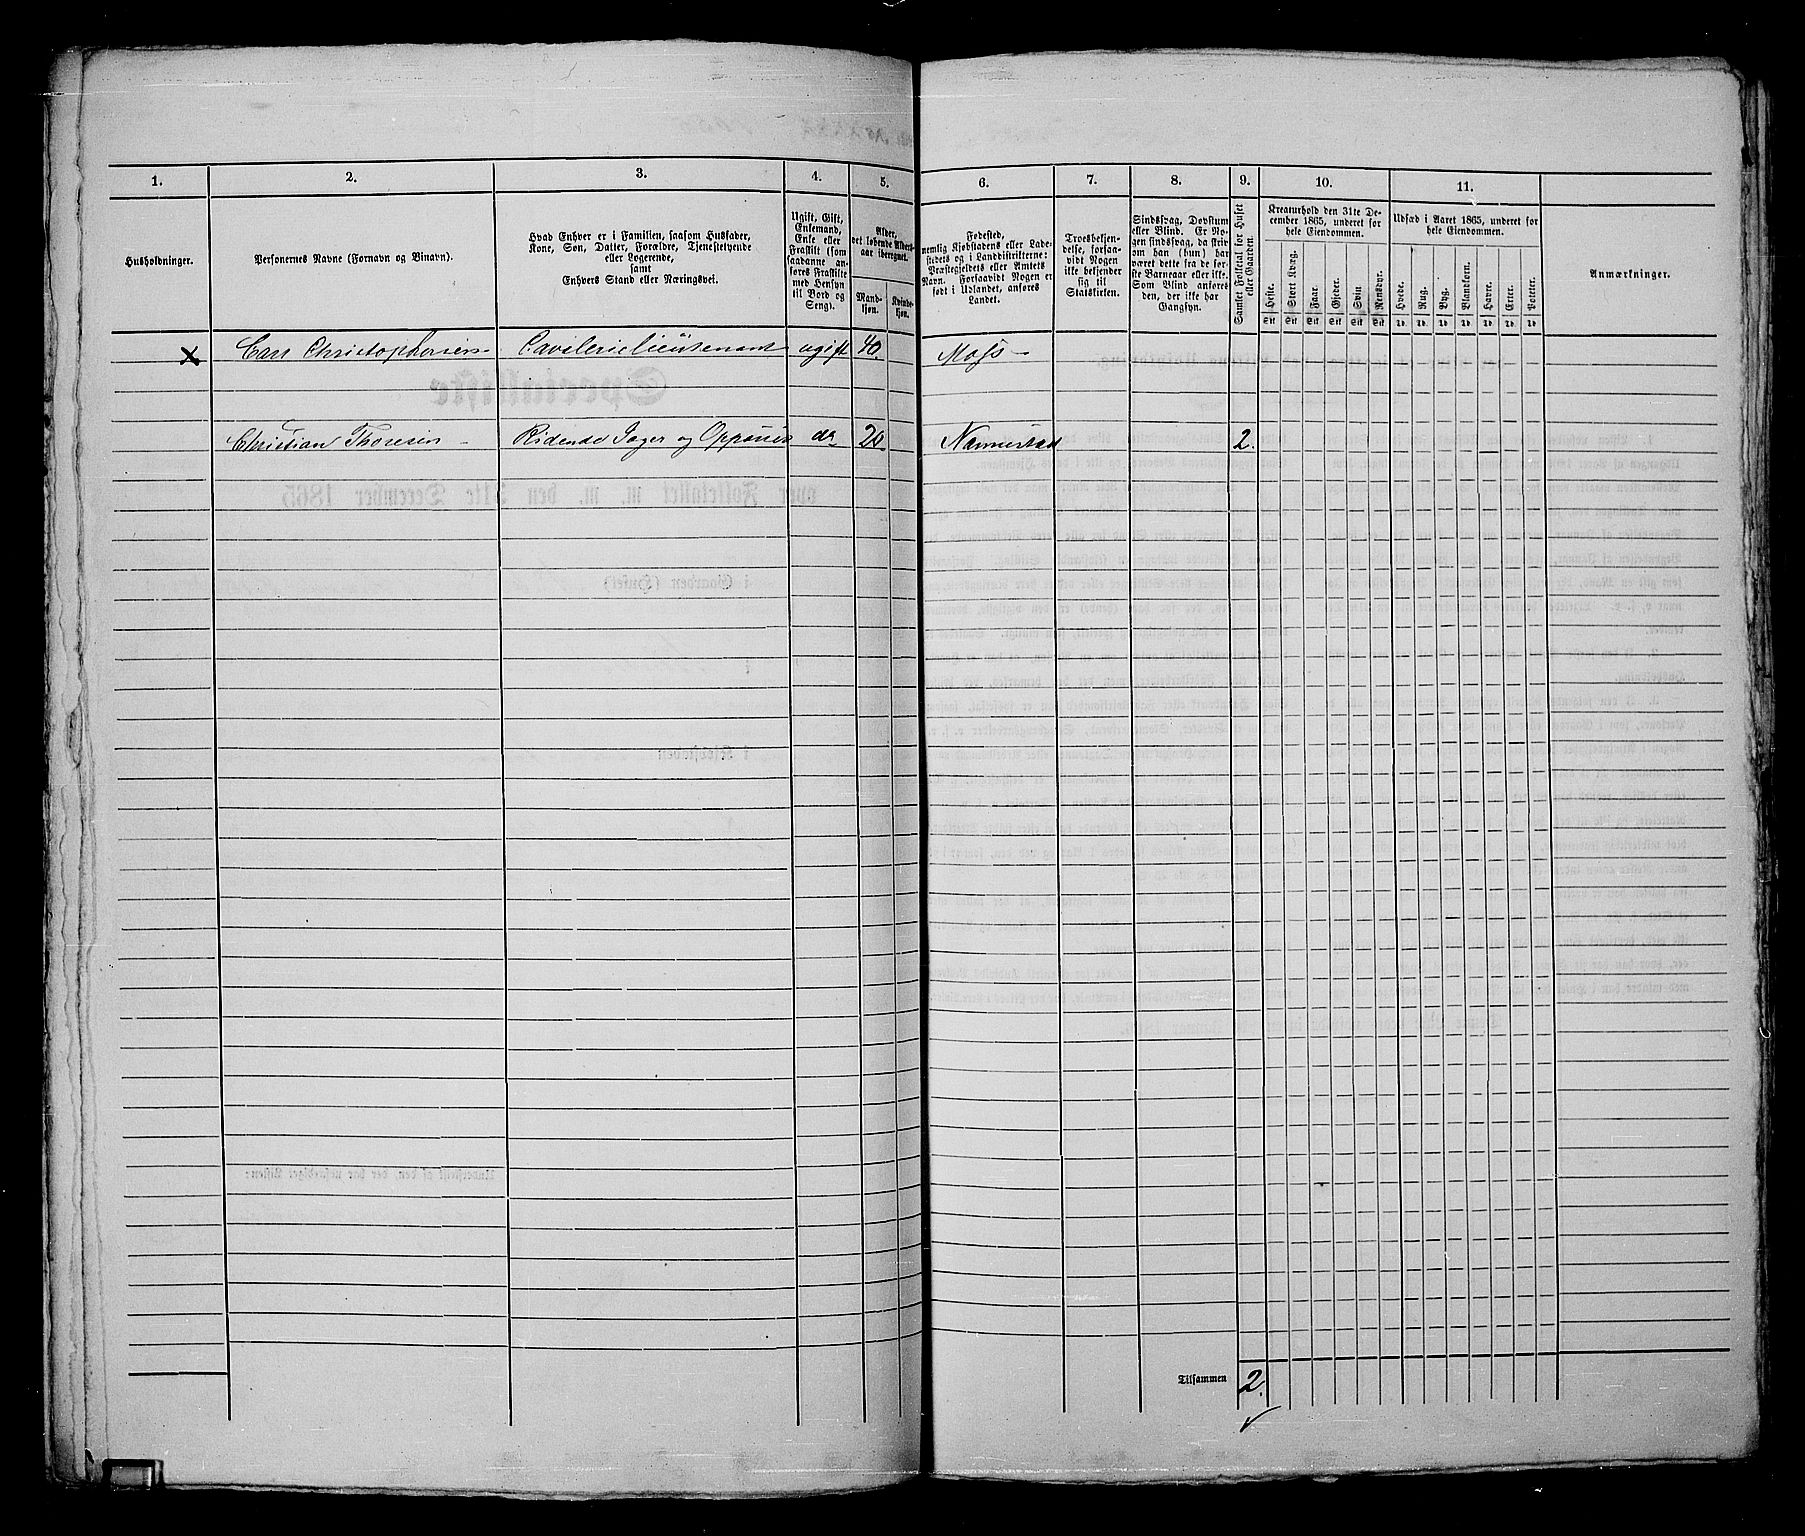 1. 2. 3. 4. 5. 6. 7. 8. 9. 10. 11.
Husholdninger.
Personernes Navne (Fornavn og Binavn).
Hvad Enhver er i Familien, saasom Husfader,
Kone, Søn, Datter, Forældre, Tjenestetyende
eller Logerende,
samt
Enhvers Stand eller Næringsvei.
Ugift, Gift,
Enkemand,
Enke eller
Fraskilt (som
saadanne an-
føres Fraskilte
med Hensyn
til Bord og
Seng).
Alder,
det løbende Alders-
aar iberegnet.
Mand-
kjøn.
Kvinde-
kjøn.
Fødested,
nemlig Kjøbstadens eller Lade-
stedets og i Landdistrikterne:
Præstegjeldets eller Amtets
Navn. Forsaavidt Nogen er
født i Udlandet, anføres
Landet.
Troesbekjen-
delse, forsaa-
vidt Nogen
ikke bekjender
sig til
Statskirken.
Sindssvag, Døvstum
eller Blind. Er No-
gen sindssvag, da skriv
om han (hun) har
været dette fra de før-
ste Barneaar eller ikke.
Som Blind anføres
den, der ikke har
Gangsyn.
Samlet Folketal for Huset
eller Gaarden.
Kreaturhold den 31te De-
cember 1865, underet for
hele Eiendommen.
Heste. Stort Kvæg. Faar. Gjeder. Svin Rensdyr.
Stk Stk Stk Stk Stk Stk
Udsæd i Aaret 1865, underet for
hele Eiendommen.
Hvede. Rug. Byg. Blandkorn. Havre. Erter. Poteter.
Td. Td. Td. Td. Td. Td. Td.
Anmærkninger.
x Carl Christophersen Cavalerielieutenant ugift 40. Moss –
Christian Thoresen – Ridende Jager og Oppasser do 20 Nannestad 2.
Tilsammen 2.